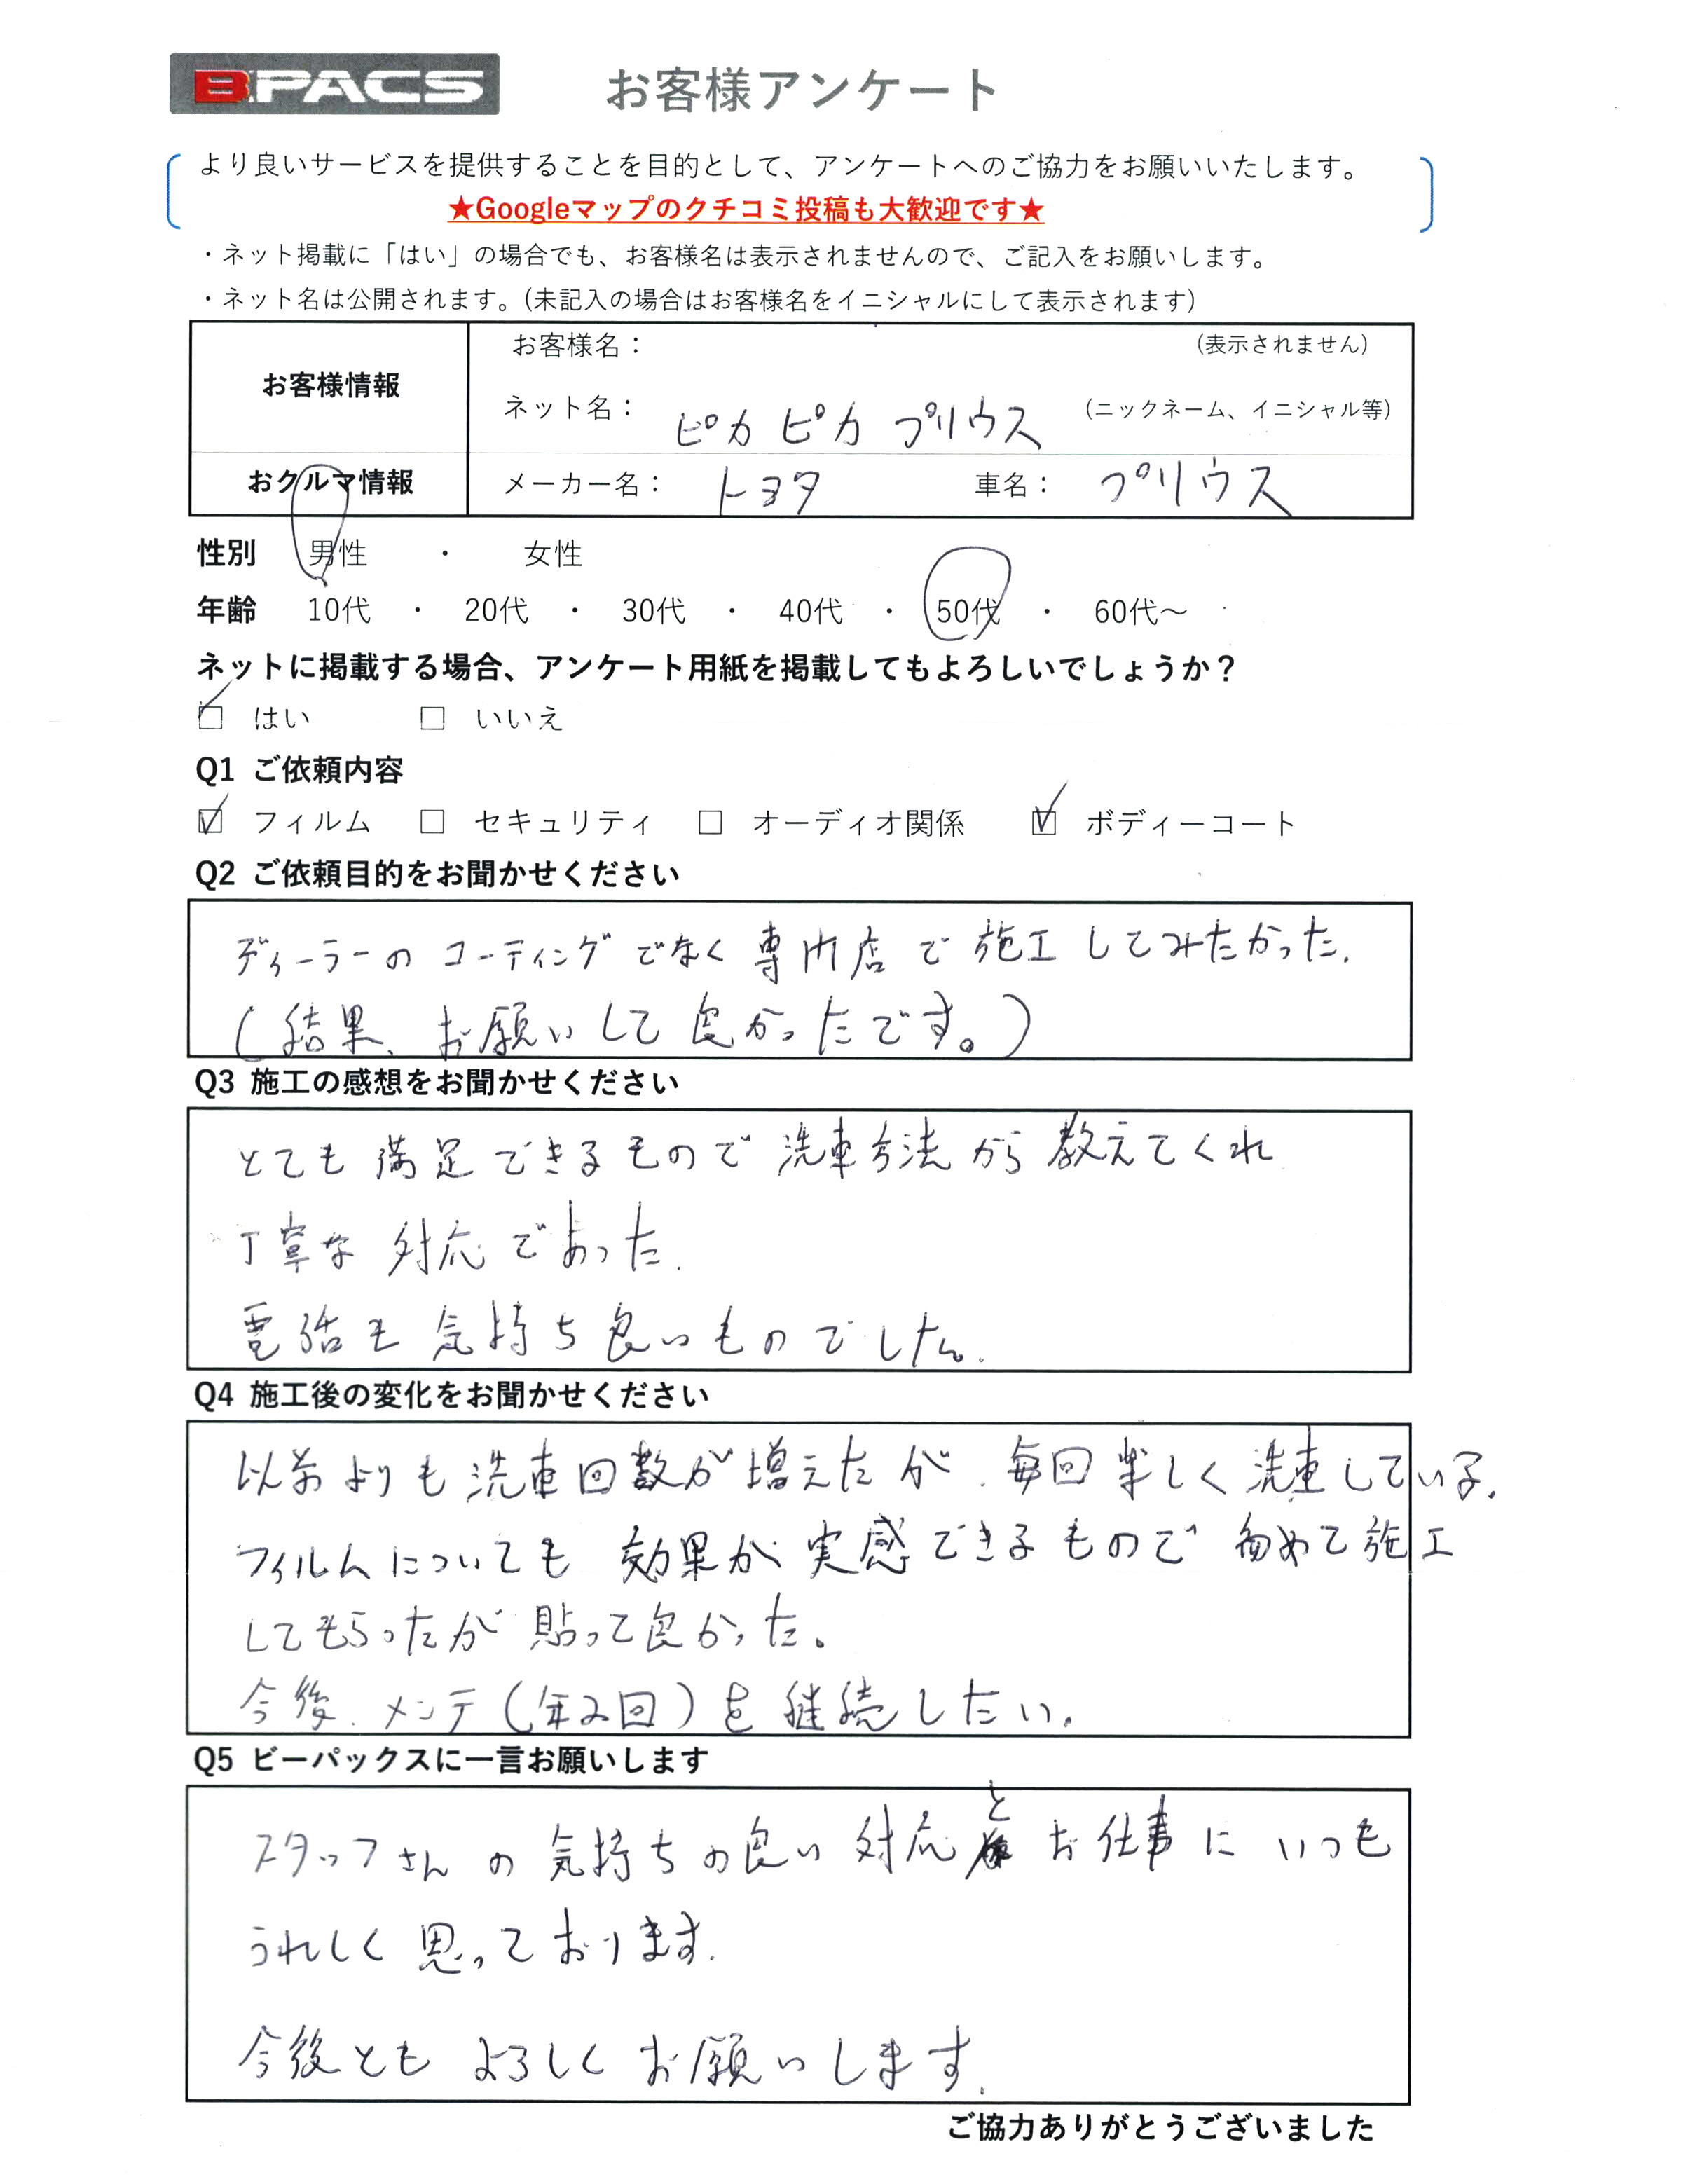 BPACS お客様アンケート
より良いサービスを提供することを目的として、アンケートへのご協力をお願いいたします。
★Googleマップのクチコミ投稿も大歓迎です★
・ネット掲載に「はい」の場合でも、お客様名は表示されませんので、ご記入をお願いします。
・ネット名は公開されます。（未記入の場合はお客様名をイニシャルにして表示されます）
お客様情報
お客様名： （表示されません）
ネット名： ピカピカプリウス （ニックネーム、イニシャル等）
おクルマ情報 メーカー名： トヨタ 車名： プリウス
性別 男性 ・ 女性
年齢 10代 ・ 20代 ・ 30代 ・ 40代 ・ 50代 ・ 60代～
ネットに掲載する場合、アンケート用紙を掲載してもよろしいでしょうか？
☑ はい □ いいえ
Q1 ご依頼内容
☑ フィルム □ セキュリティ □ オーディオ関係 ☑ ボディーコート
Q2 ご依頼目的をお聞かせください
ディーラーのコーティングでなく専門店で施工してみたかった.
（結果、お願いして良かったです。）
Q3 施工の感想をお聞かせください
とても満足できるもので洗車方法から教えてくれ
丁寧な対応であった.
電話も気持ち良いものでした.
Q4 施工後の変化をお聞かせください
以前よりも洗車回数が増えたが、毎回楽しく洗車している.
フィルムについても効果が実感できるもので勧めて施工
してもらったが貼って良かった。
今後、メンテ（年2回）を継続したい.
Q5 ビーパックスに一言お願いします
スタッフさんの気持ちの良い対応とお仕事にいつも
うれしく思っております.
今後ともよろしくお願いします.
ご協力ありがとうございました